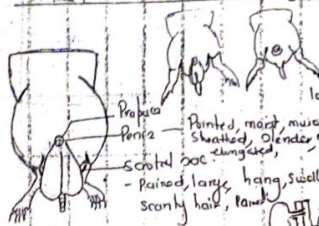 Prepuce
Penis — Pointed, moist,
Sheathed, slender,
elongated,
scrotal sac
- Paired, large, hang,
scanty hair,